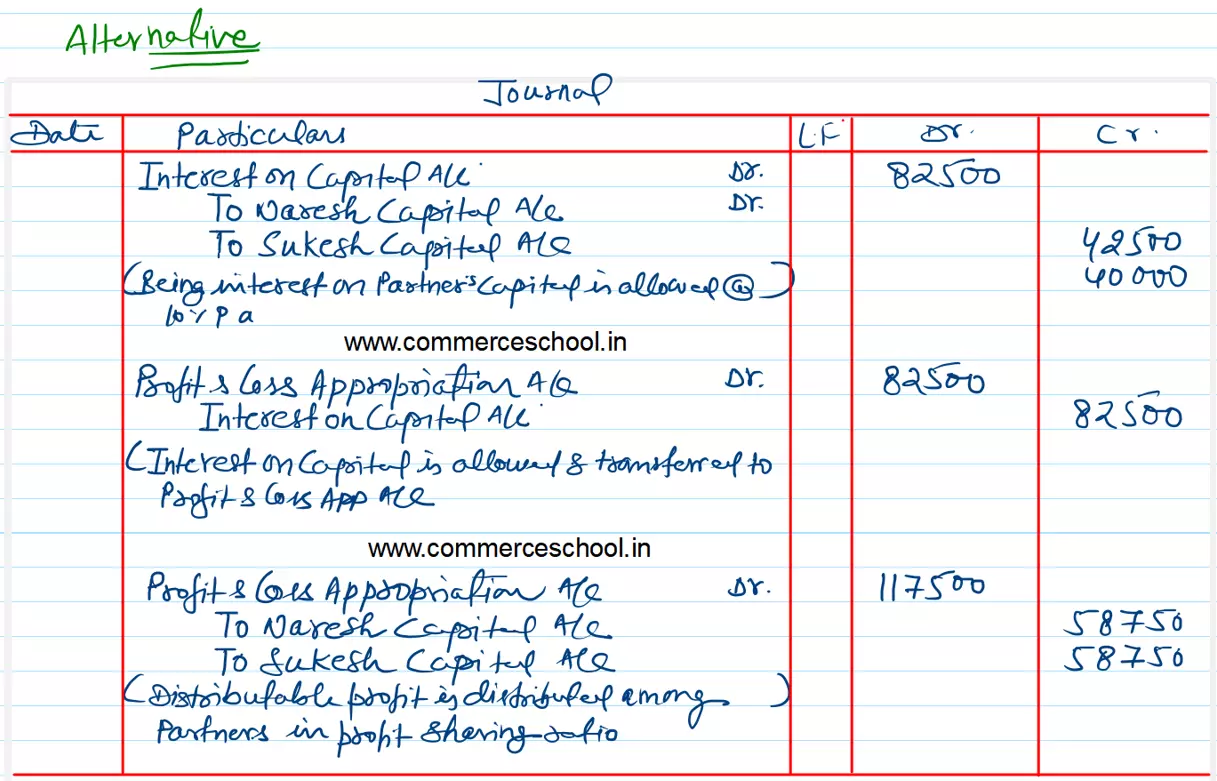 Alternative
Journal
Date Particulars LF Dr. Cr.
Interest on Capital A/c Dr. 82500
To Naresh Capital A/c Dr.
To Sukesh Capital A/c 42500
(Being interest on Partner's Capital is allowed @ ) 40000
10% P a
www.commerceschool.in
Profit & Loss Appropriation A/c Dr. 82500
Interest on Capital A/c 82500
(Interest on Capital is allowed & transferred to
Profit & Loss App A/c
www.commerceschool.in
Profit & Loss Appropriation A/c Dr. 117500
To Naresh Capital A/c 58750
To Sukesh Capital A/c 58750
(Distributable profit is distributed among )
Partners in profit sharing ratio